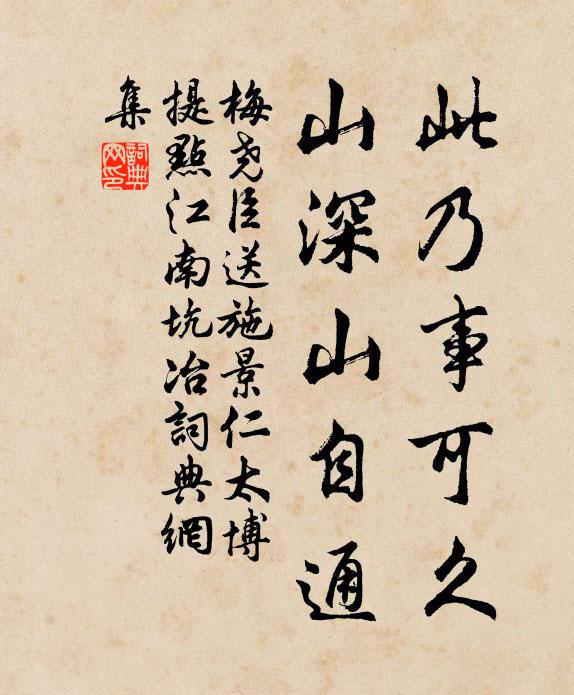 此乃事可久
山深山自通
梅尧臣送施景仁太博
提點江南坑冶詞典網
集
詞典網印